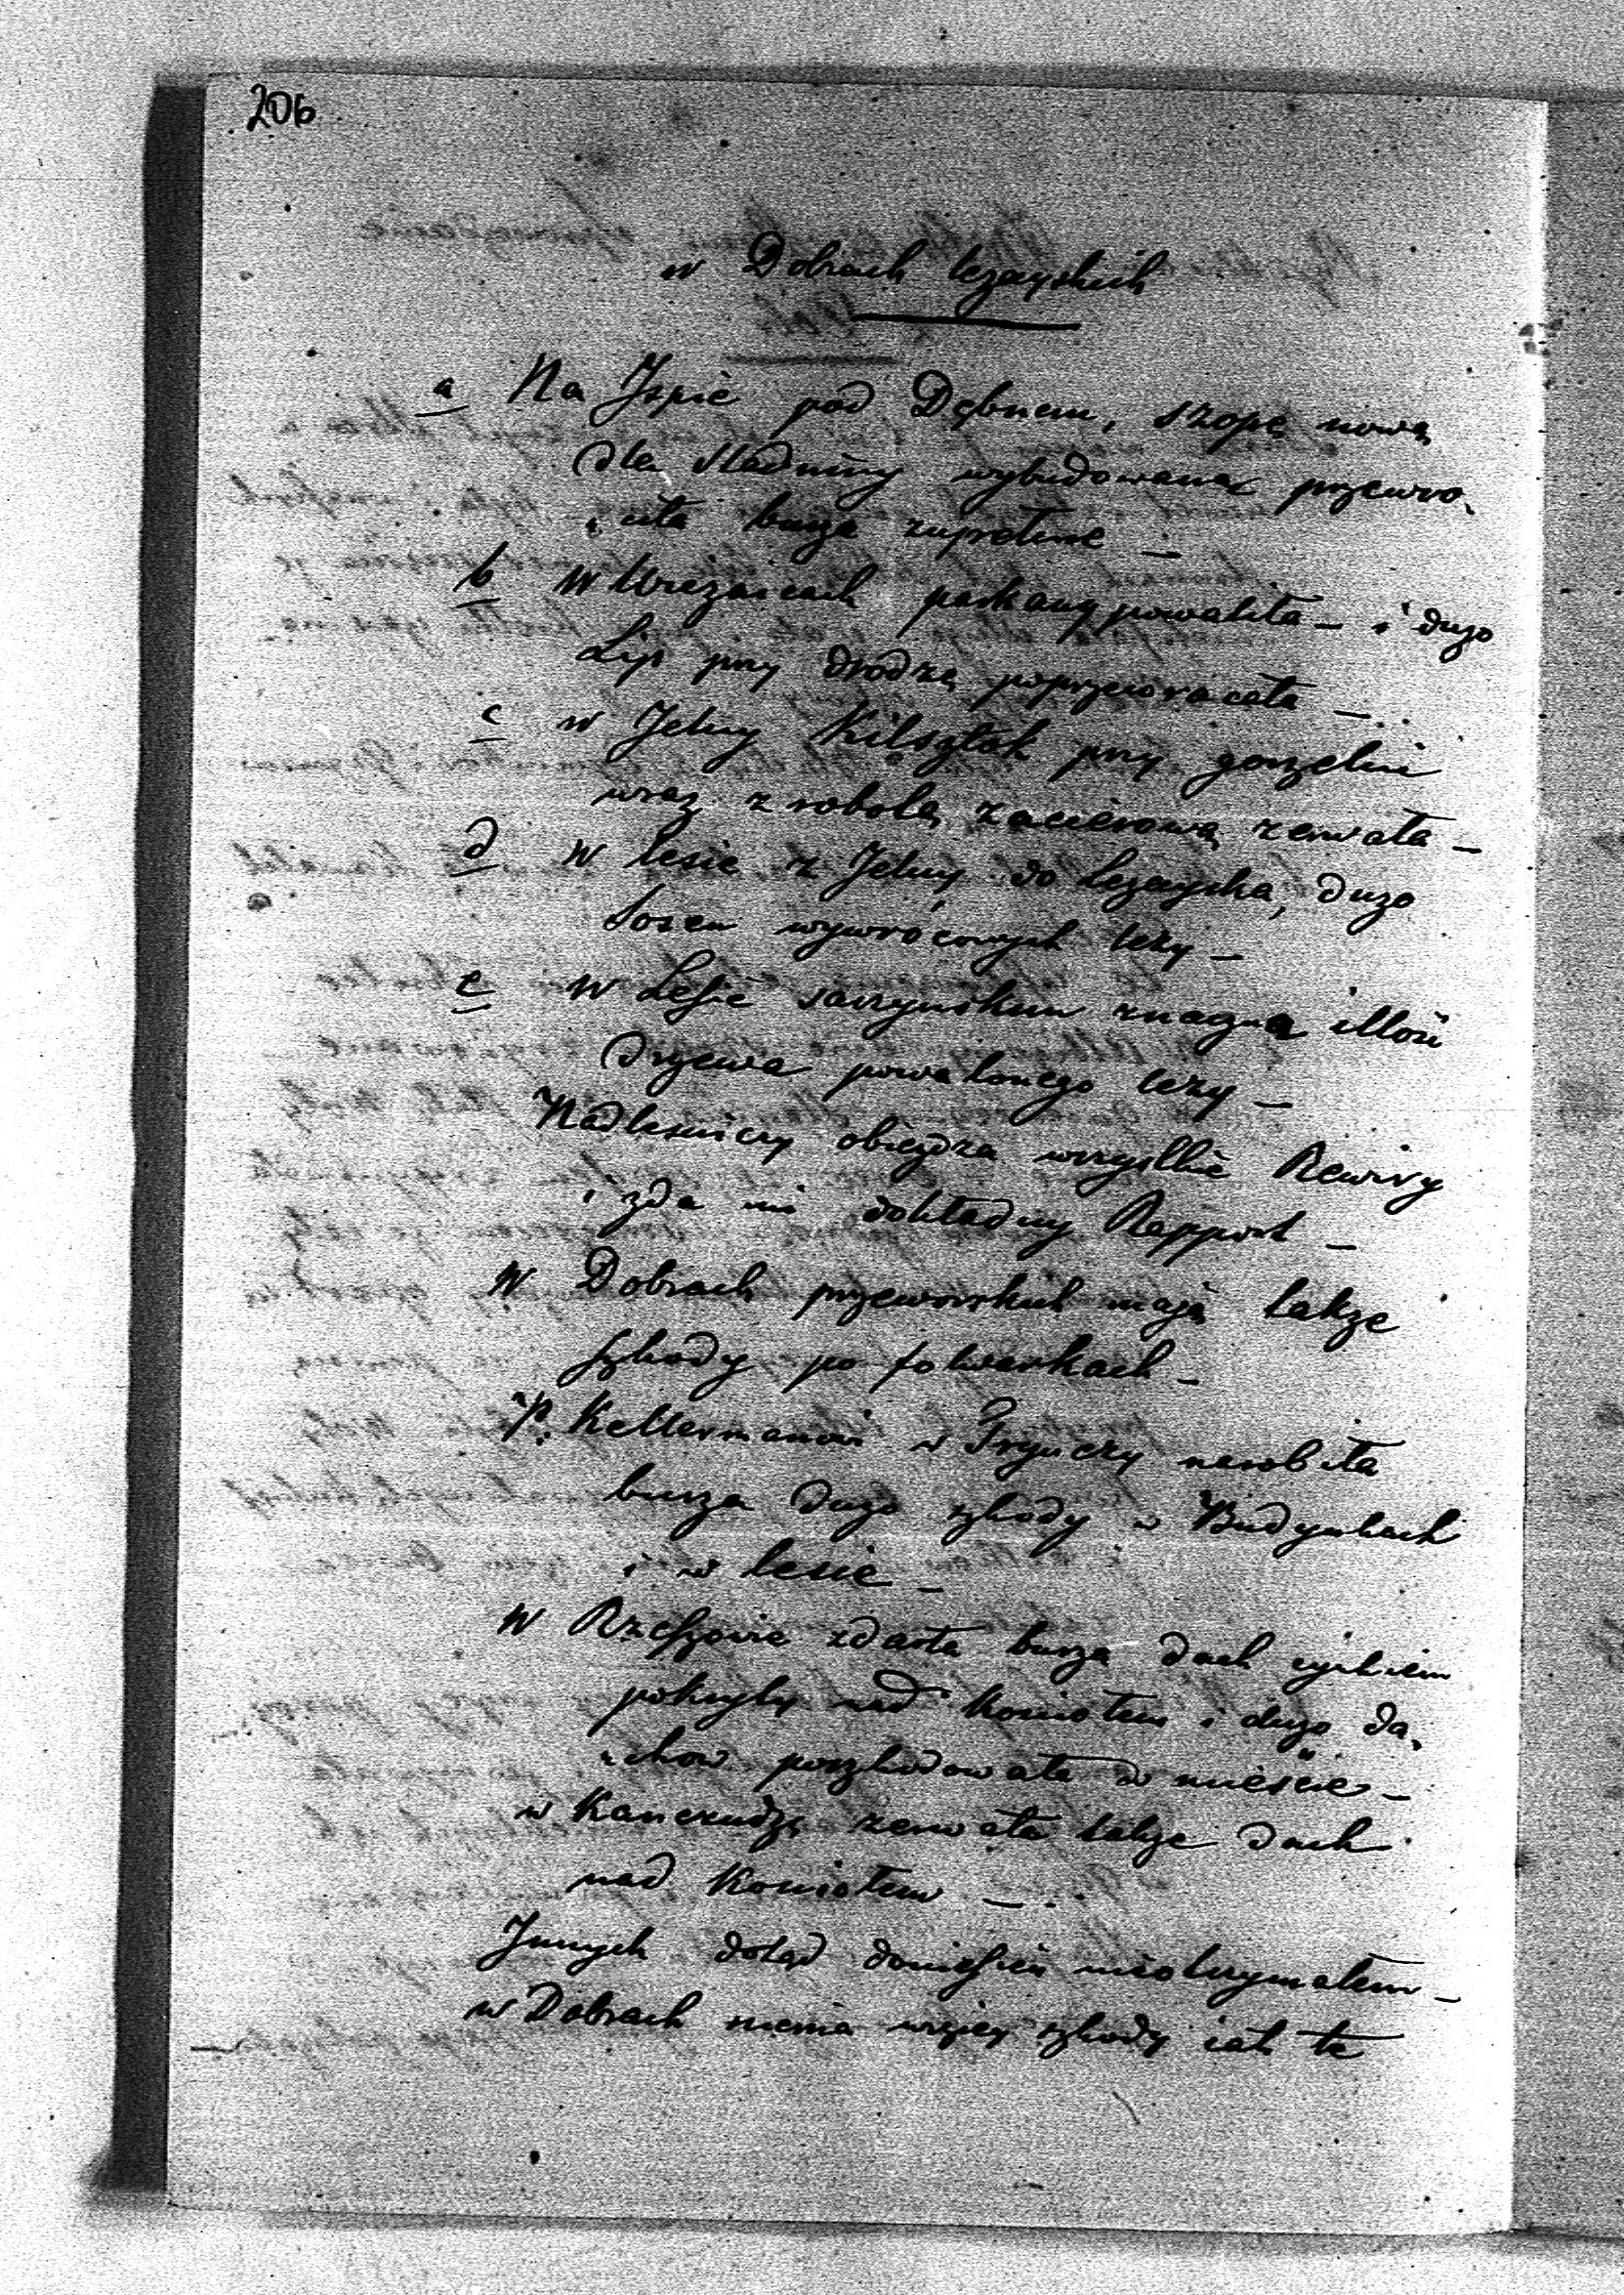 206
w Dobrach leżayskich
a Na Ispie pod Dębnem, szopę nową
dla stadniny wybudowaną przewro„
„ciła burza zupełnie —
b w Wierzawicach parkany powaliła — i dużo
Lip przy drodze poprzewracała —
c w Jelny Kilsztok przy gorzelni
wraz z robotą zacierową zerwała —
d w lesie z Jelny do Leżayska, dużo
Sosen wywróconych leży —
e w Lesie sarzynskim znaczna illość
drzewa powalonego leży —
Nadlesniczy obieżdza wszystkie Rewiry
i zda mi dokładny Rapport —
W Dobrach przeworskich mają także
szkody po folwarkach —
P. Kellermanowi w Gryuczy narobiła
burza dużo szkody w Budynkach
i w lesie —
W Rzeszowie zdarła burza dach cynkiem
pokryty nad kosciołem i dużo da„
„chow poszkodowała w miescie —
w Kanczudze zerwała także dach
nad kosciołem —
Innych dotąd doniesień nieotrzymałem —
w Dobrach niema więcey szkody iak te